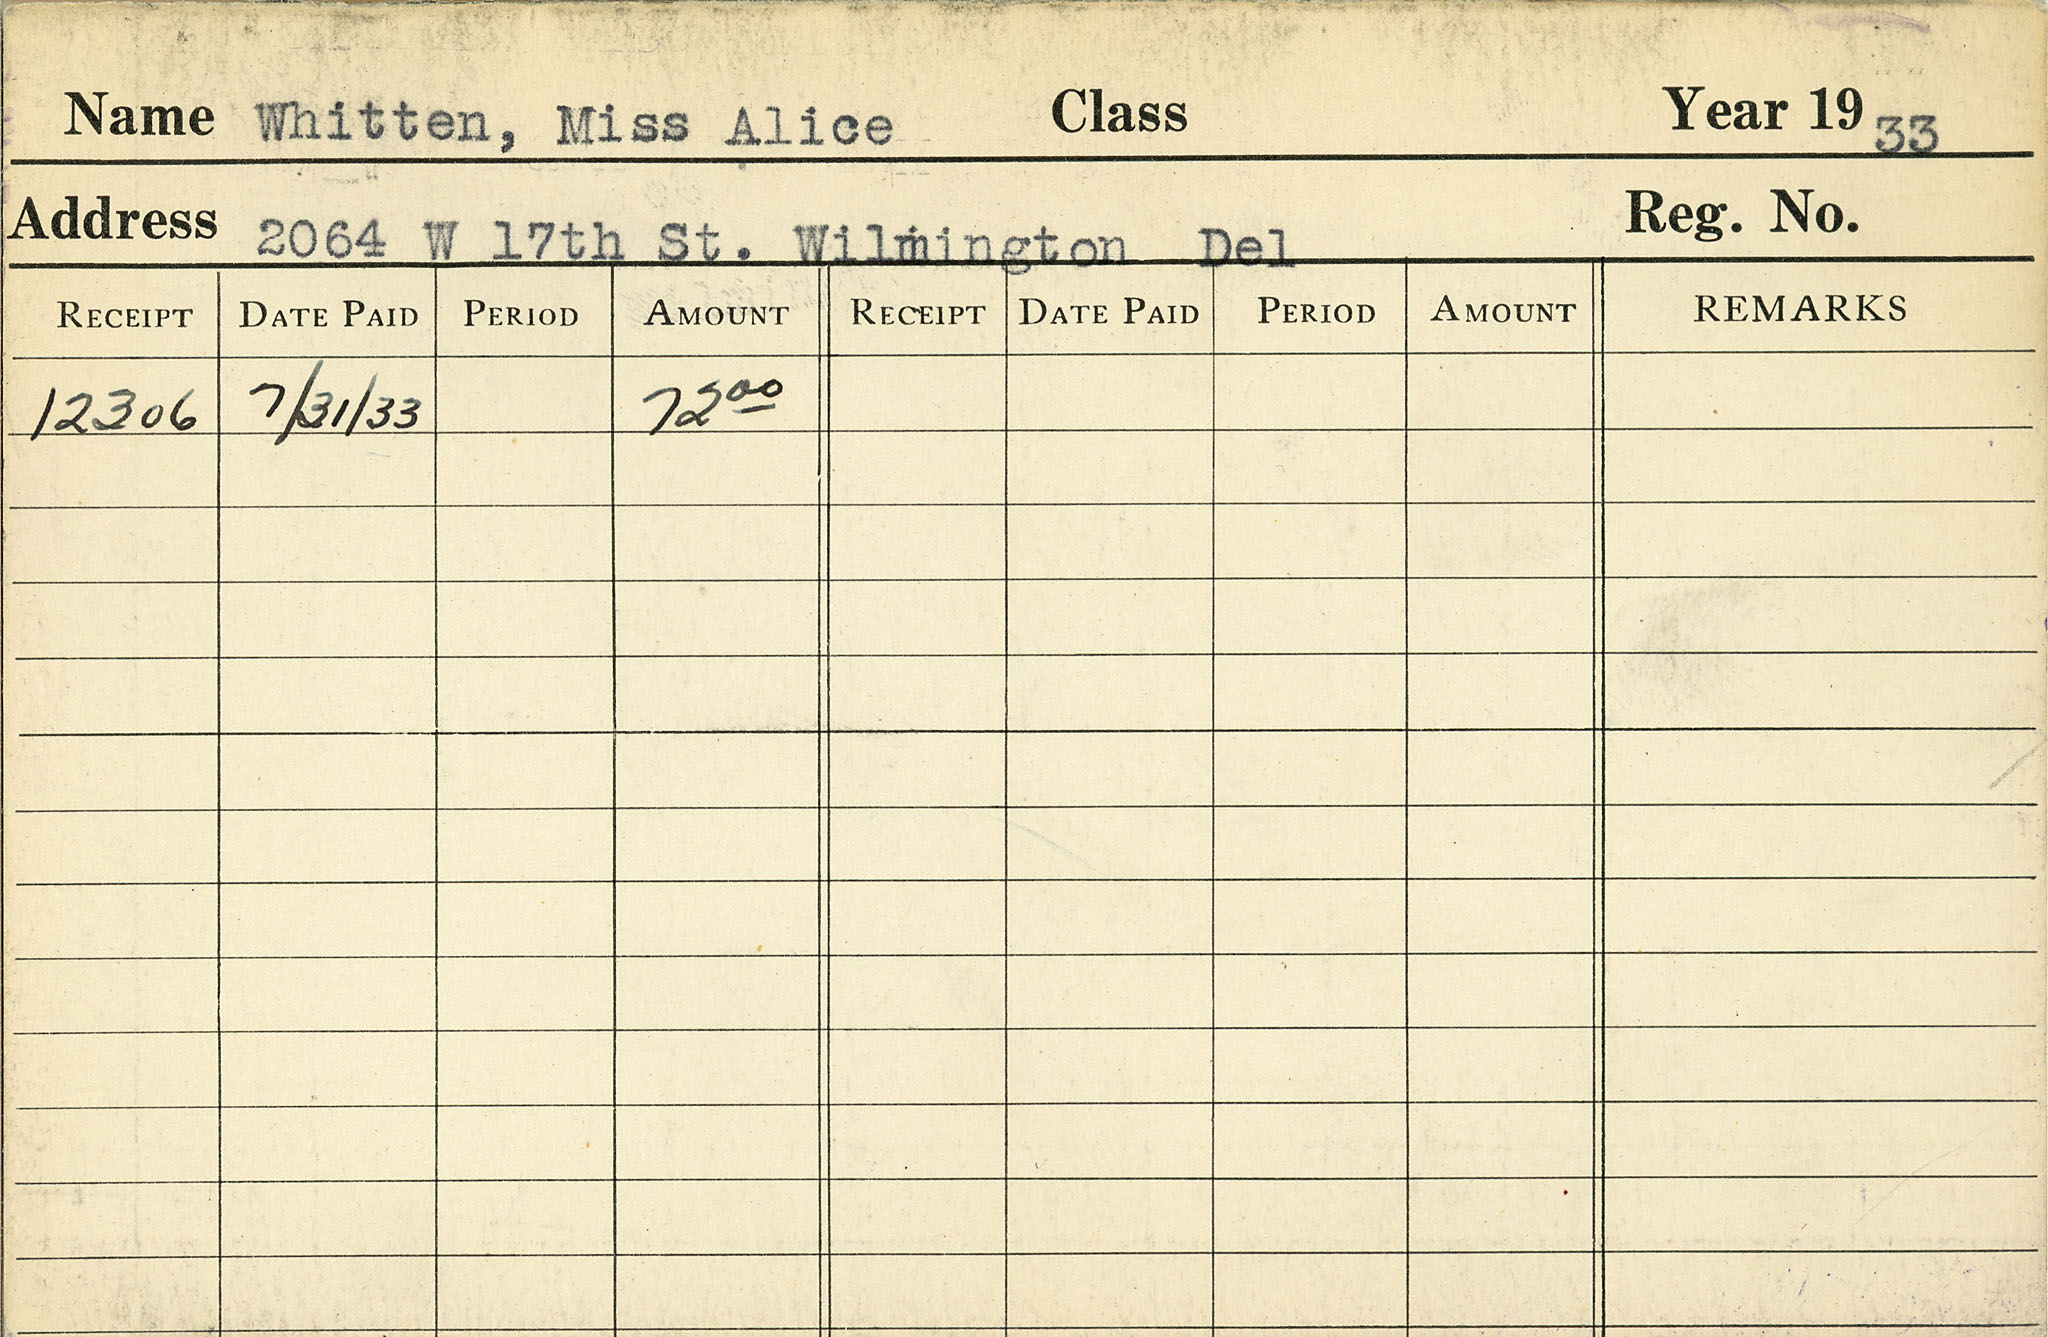 Name Whitten, Miss Alice Class Year 19 33
Address 2064 W 17th St. Wilmington Del Reg. No.
RECEIPT DATE PAID PERIOD AMOUNT RECEIPT DATE PAID PERIOD AMOUNT REMARKS
12306 7/31/33 72 00